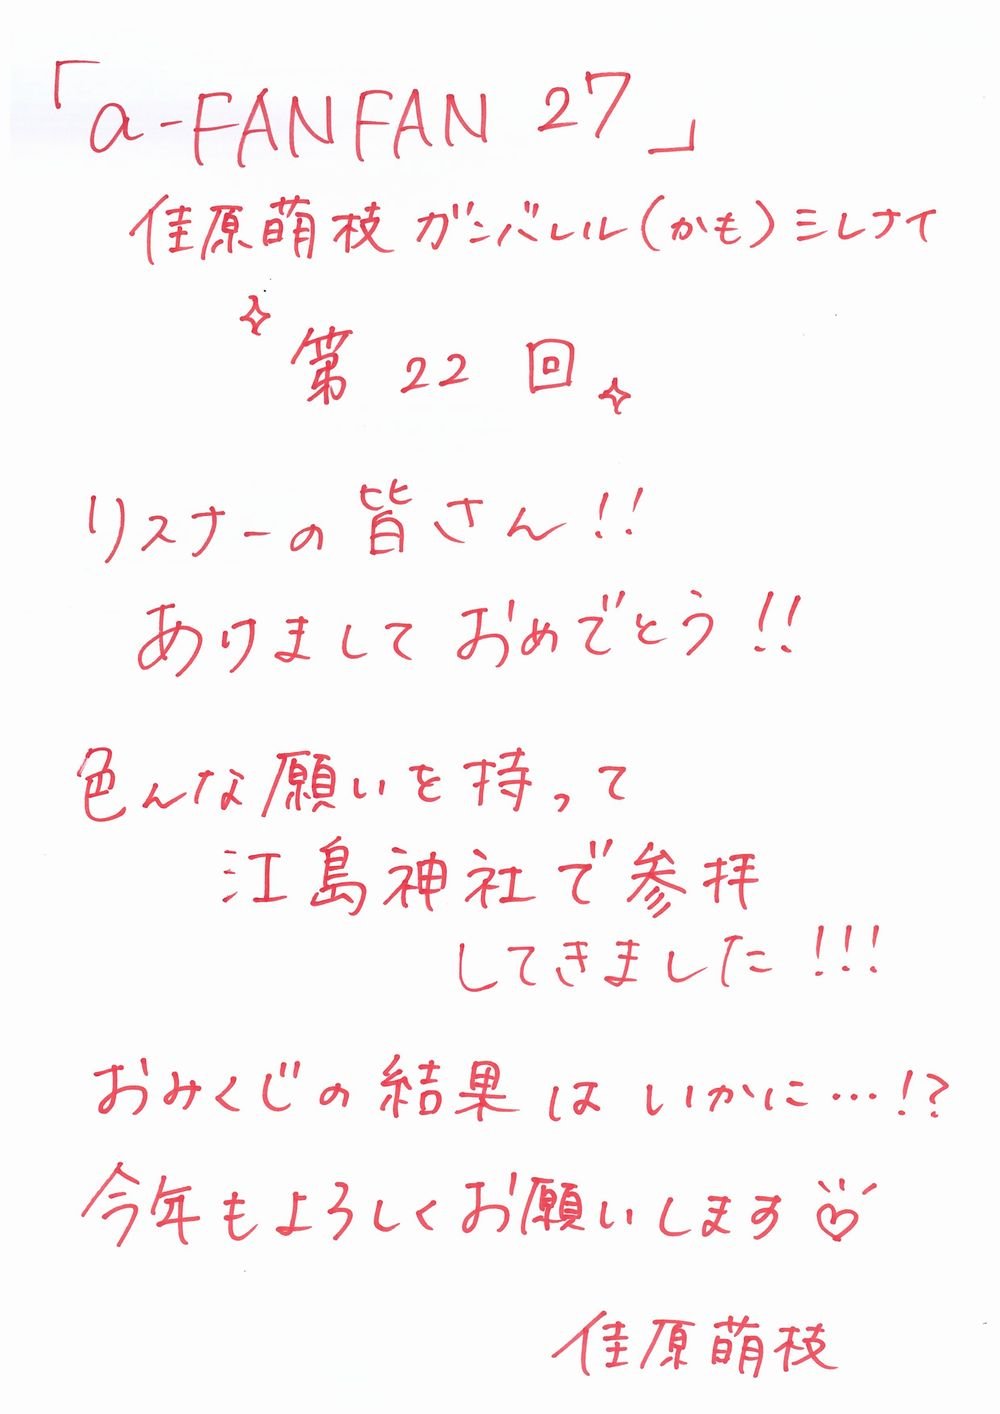 「a-FANFAN 27」
佳原萌枝 ガンバレル(かも)シレナイ
第22回
リスナーの皆さん!!
あけまして おめでとう!!
色んな願いを持って
江島神社で参拝
してきました!!!
おみくじの結果は いかに…!?
今年もよろしくお願いします♡
佳原萌枝